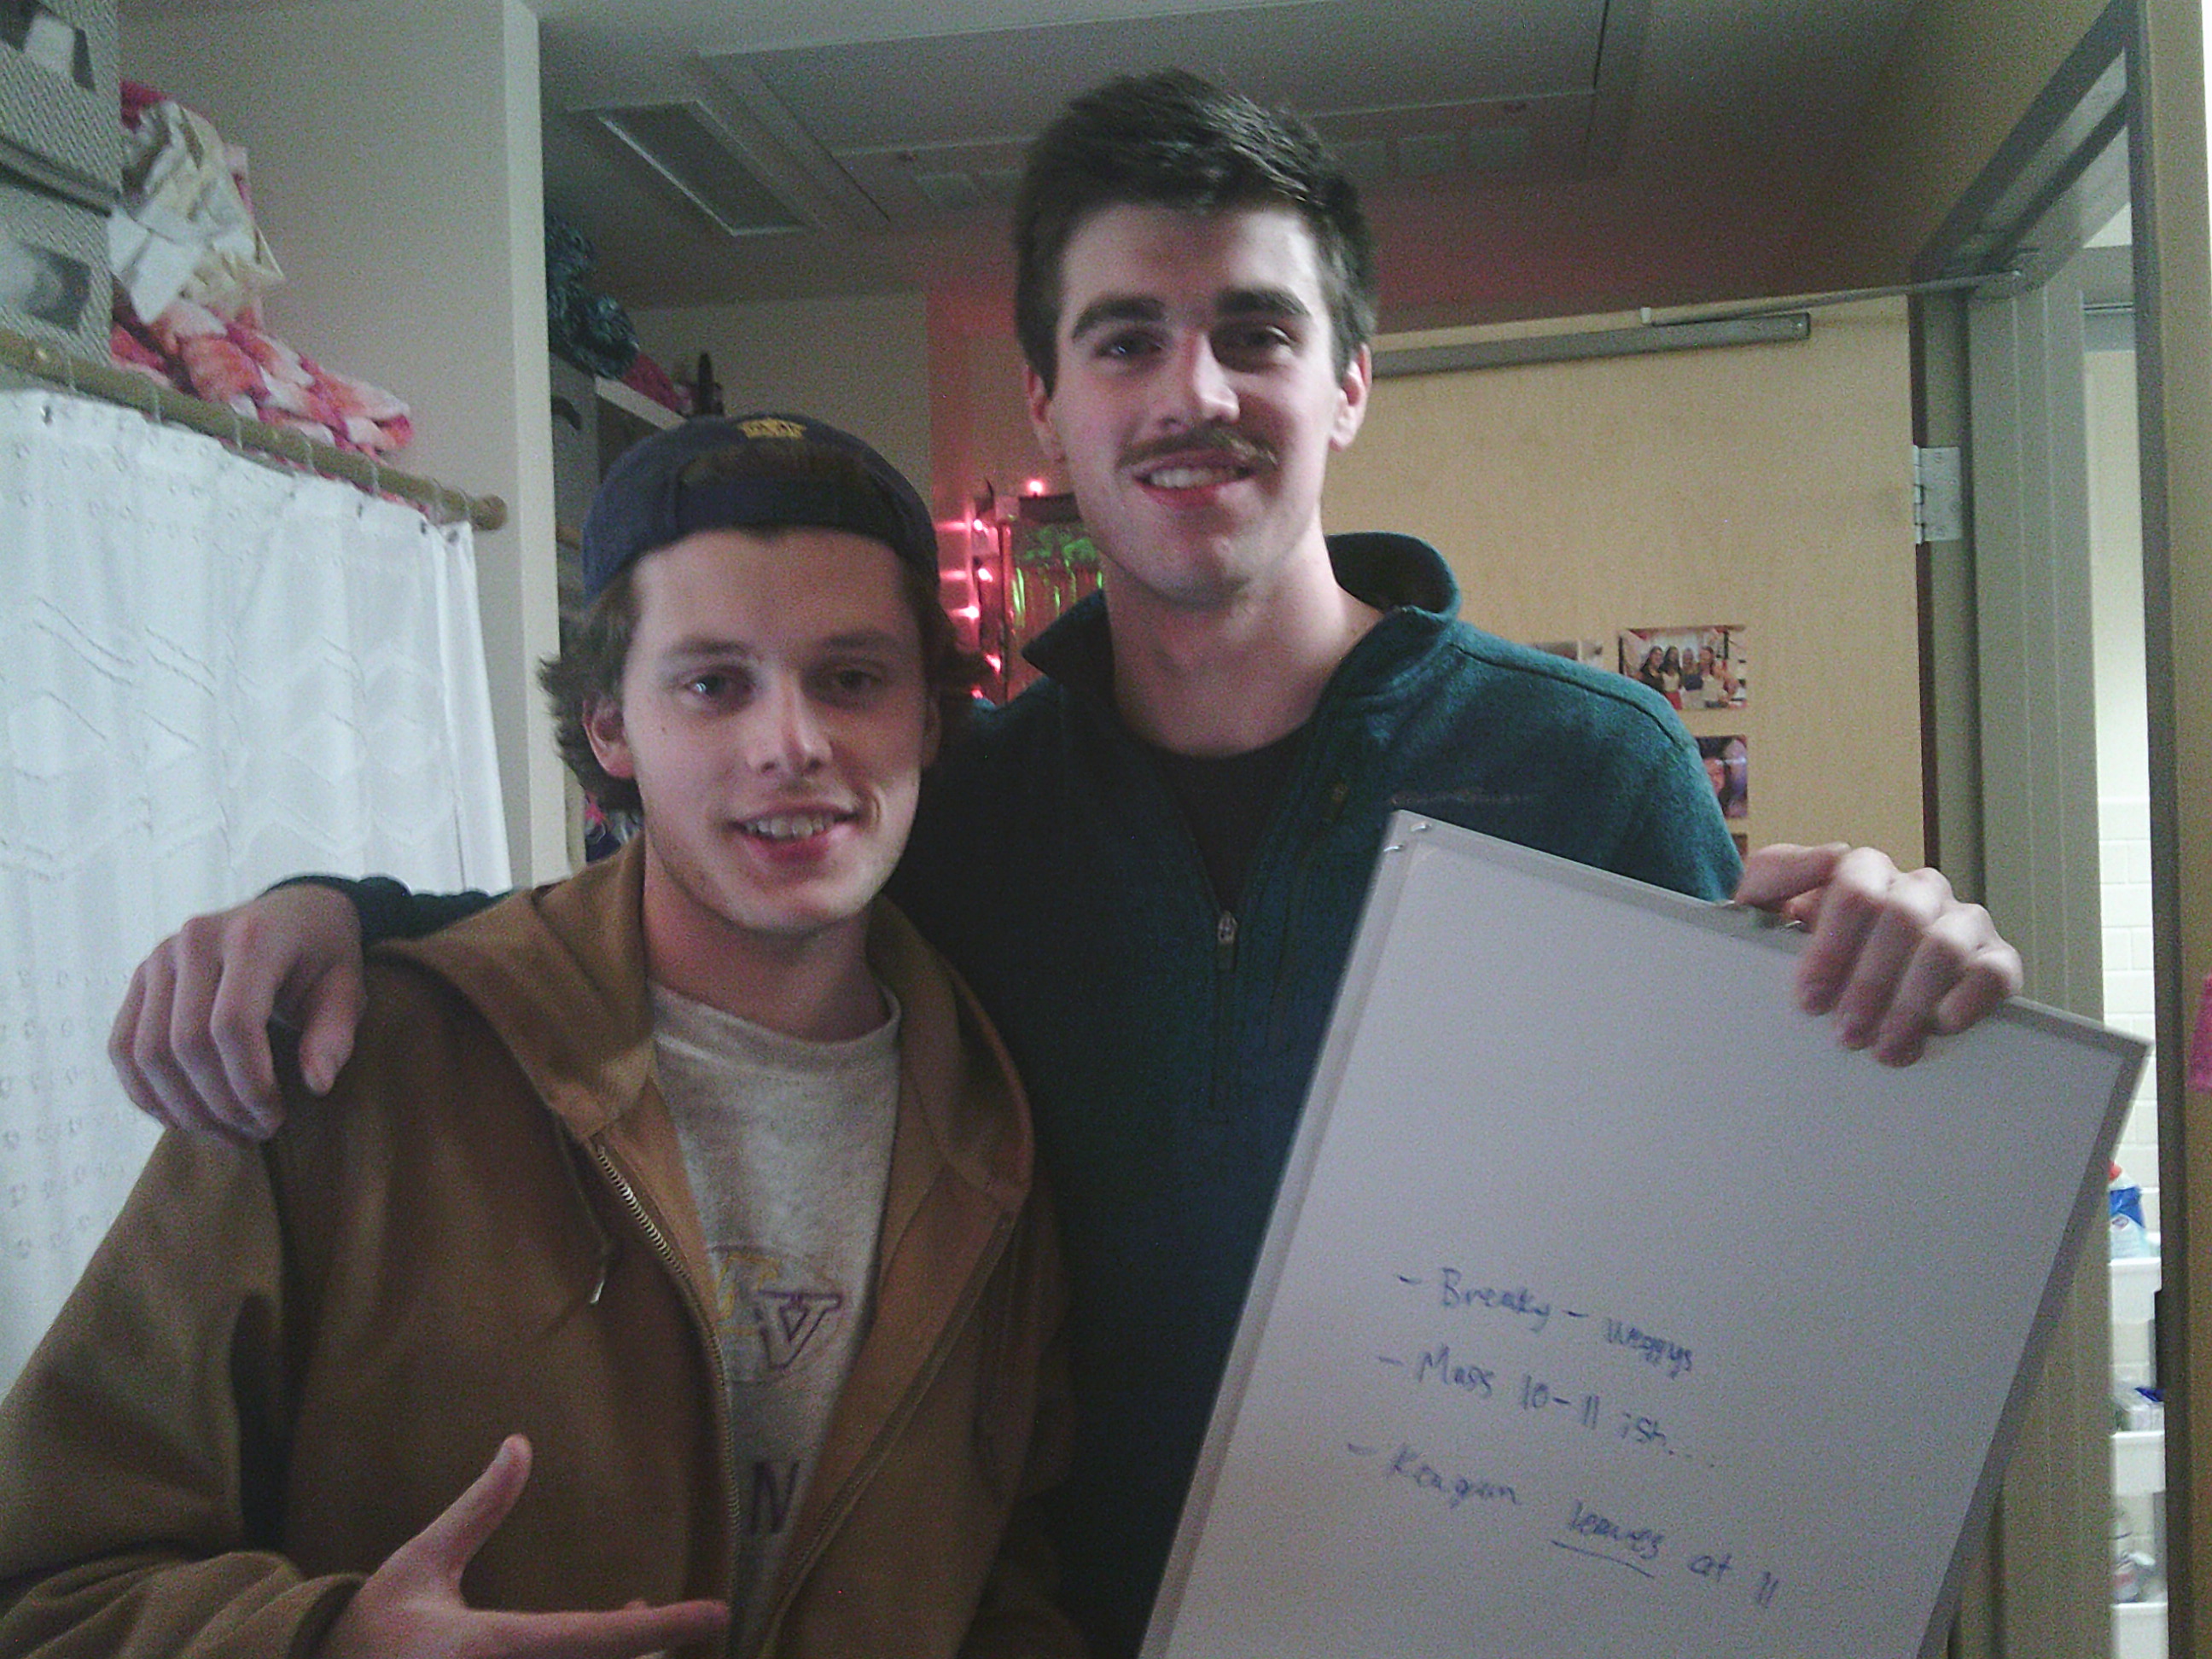 - Breaky - weggys
- Mass 10-11 ish....
- Keagan leaves at 11
N